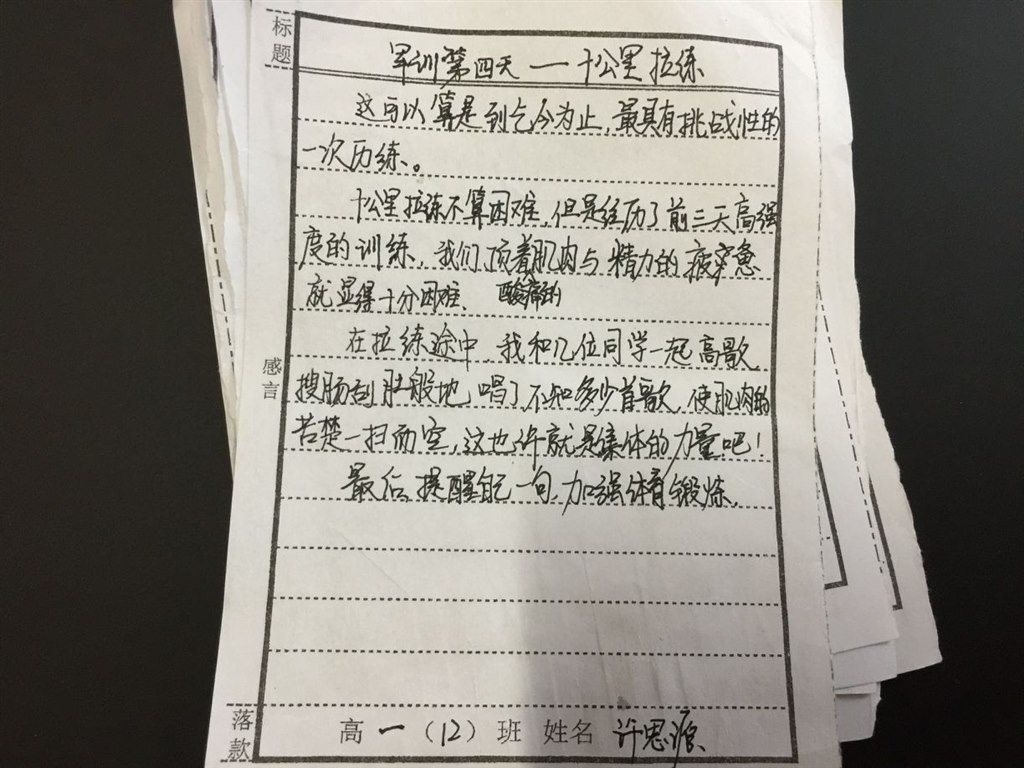 标题
军训第四天——十公里拉练
这可以算是到乞今为止，最具有挑战性的
一次历练。
十公里拉练不算困难，但是经历了前三天高强
度的训练，我们顶着肌肉与精力的疲惫
就显得十分困难、 酸痛的
在拉练途中，我和几位同学一起高歌，
搜肠刮肚般地唱了不知多少首歌，使肌肉的
感言
苦楚一扫而空，这也许就是集体的力量吧！
最后，提醒自己一句，加强体育锻炼。
落款
高一（12）班 姓名 许思源